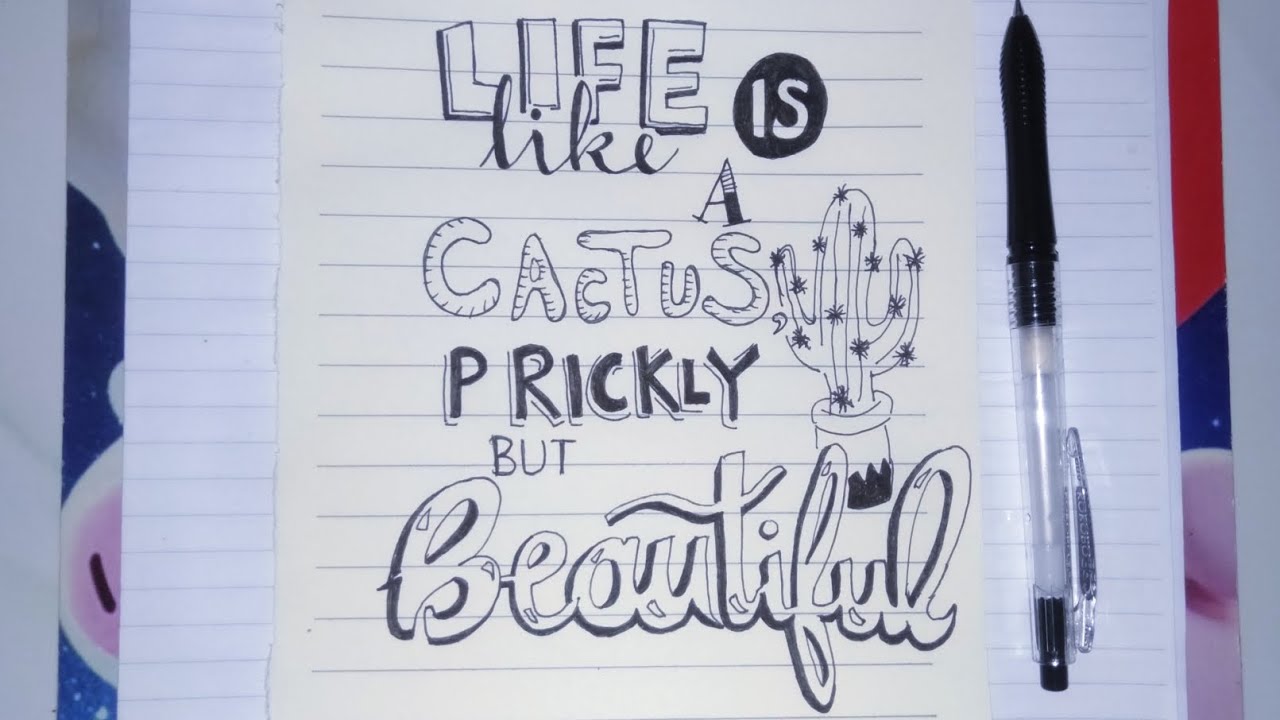 LIFE IS
like
A
CACTUS,
PRICKLY
BUT
Beautiful